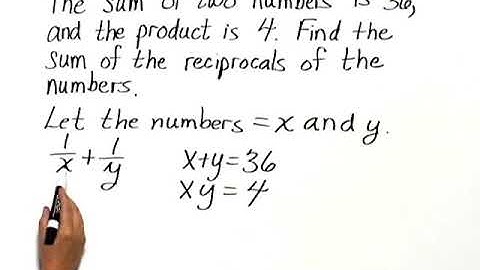 The sum of two numbers is 36,
and the product is 4. Find the
sum of the reciprocals of the
numbers.
Let the numbers = x and y.
1/x + 1/y x+y=36
xy = 4